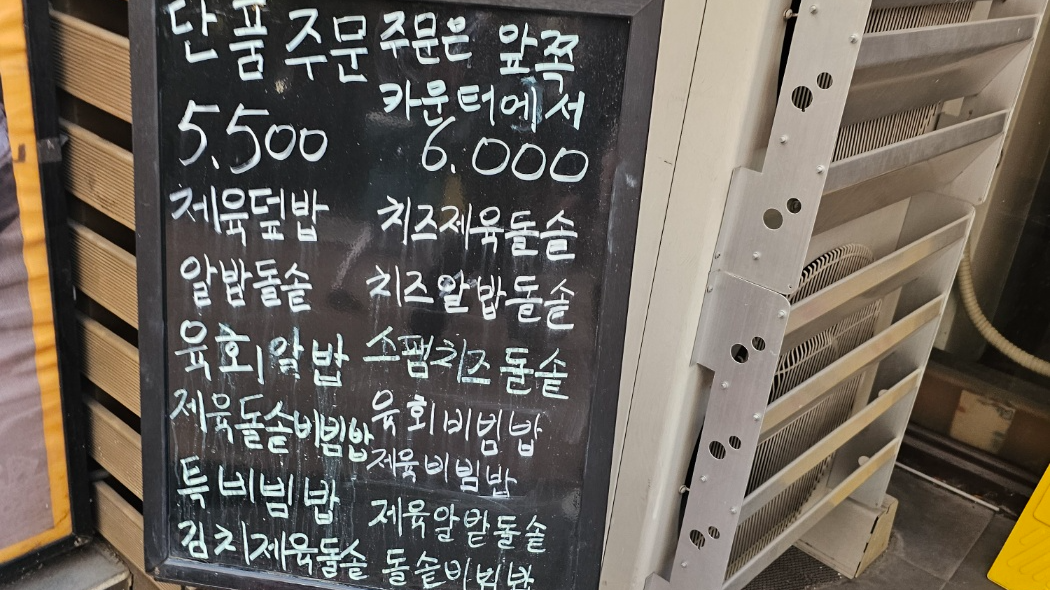 단품주문 주문은 앞쪽
카운터에서
5.500
6.000
제육덮밥
치즈제육돌솥
알밥돌솥
치즈알밥돌솥
육회알밥
스팸치즈돌솥
제육돌솥비빔밥
육회비빔밥
제육비빔밥
특비빔밥
제육알밭돌솥
김치제육돌솥
돌솥비빔밥